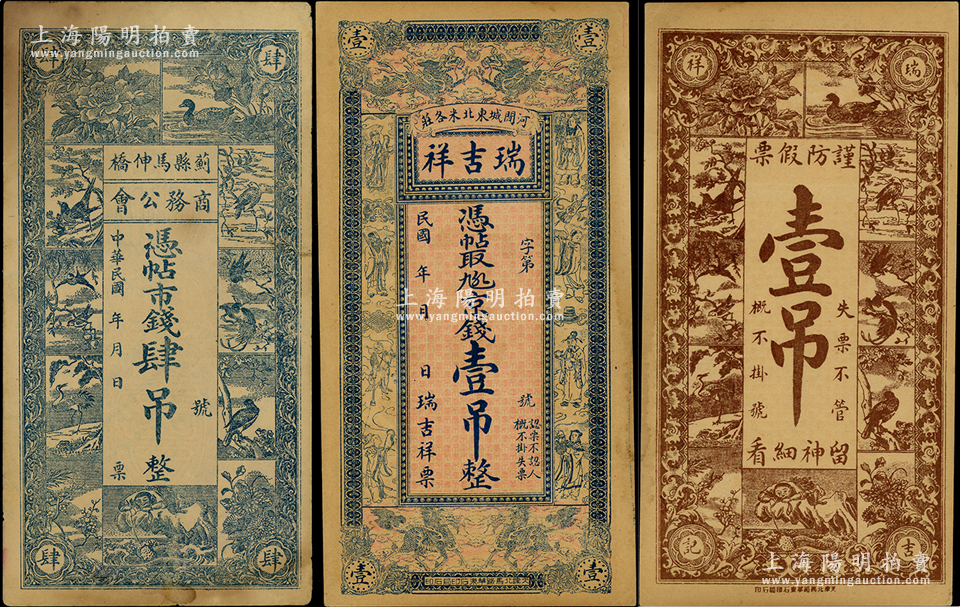 上海陽明拍賣
www.yangmingauction.com
肆
肆
薊縣馬伸橋
商務公會
憑帖市錢肆吊整
號
中華民國 年 月 日 票
肆
肆
上海陽明拍賣
www.yangmingauction.com
壹
壹
河間城東北木各莊
瑞吉祥
字第 號
認票不認人
概不掛失票
憑帖取 市錢壹吊整
民國 年 月 日 瑞吉祥票
壹
壹
瑞
祥
謹防假票
壹吊
失票不管
概不掛號
留神細看
吉
記
上海陽明拍賣
www.yangmingauction.com